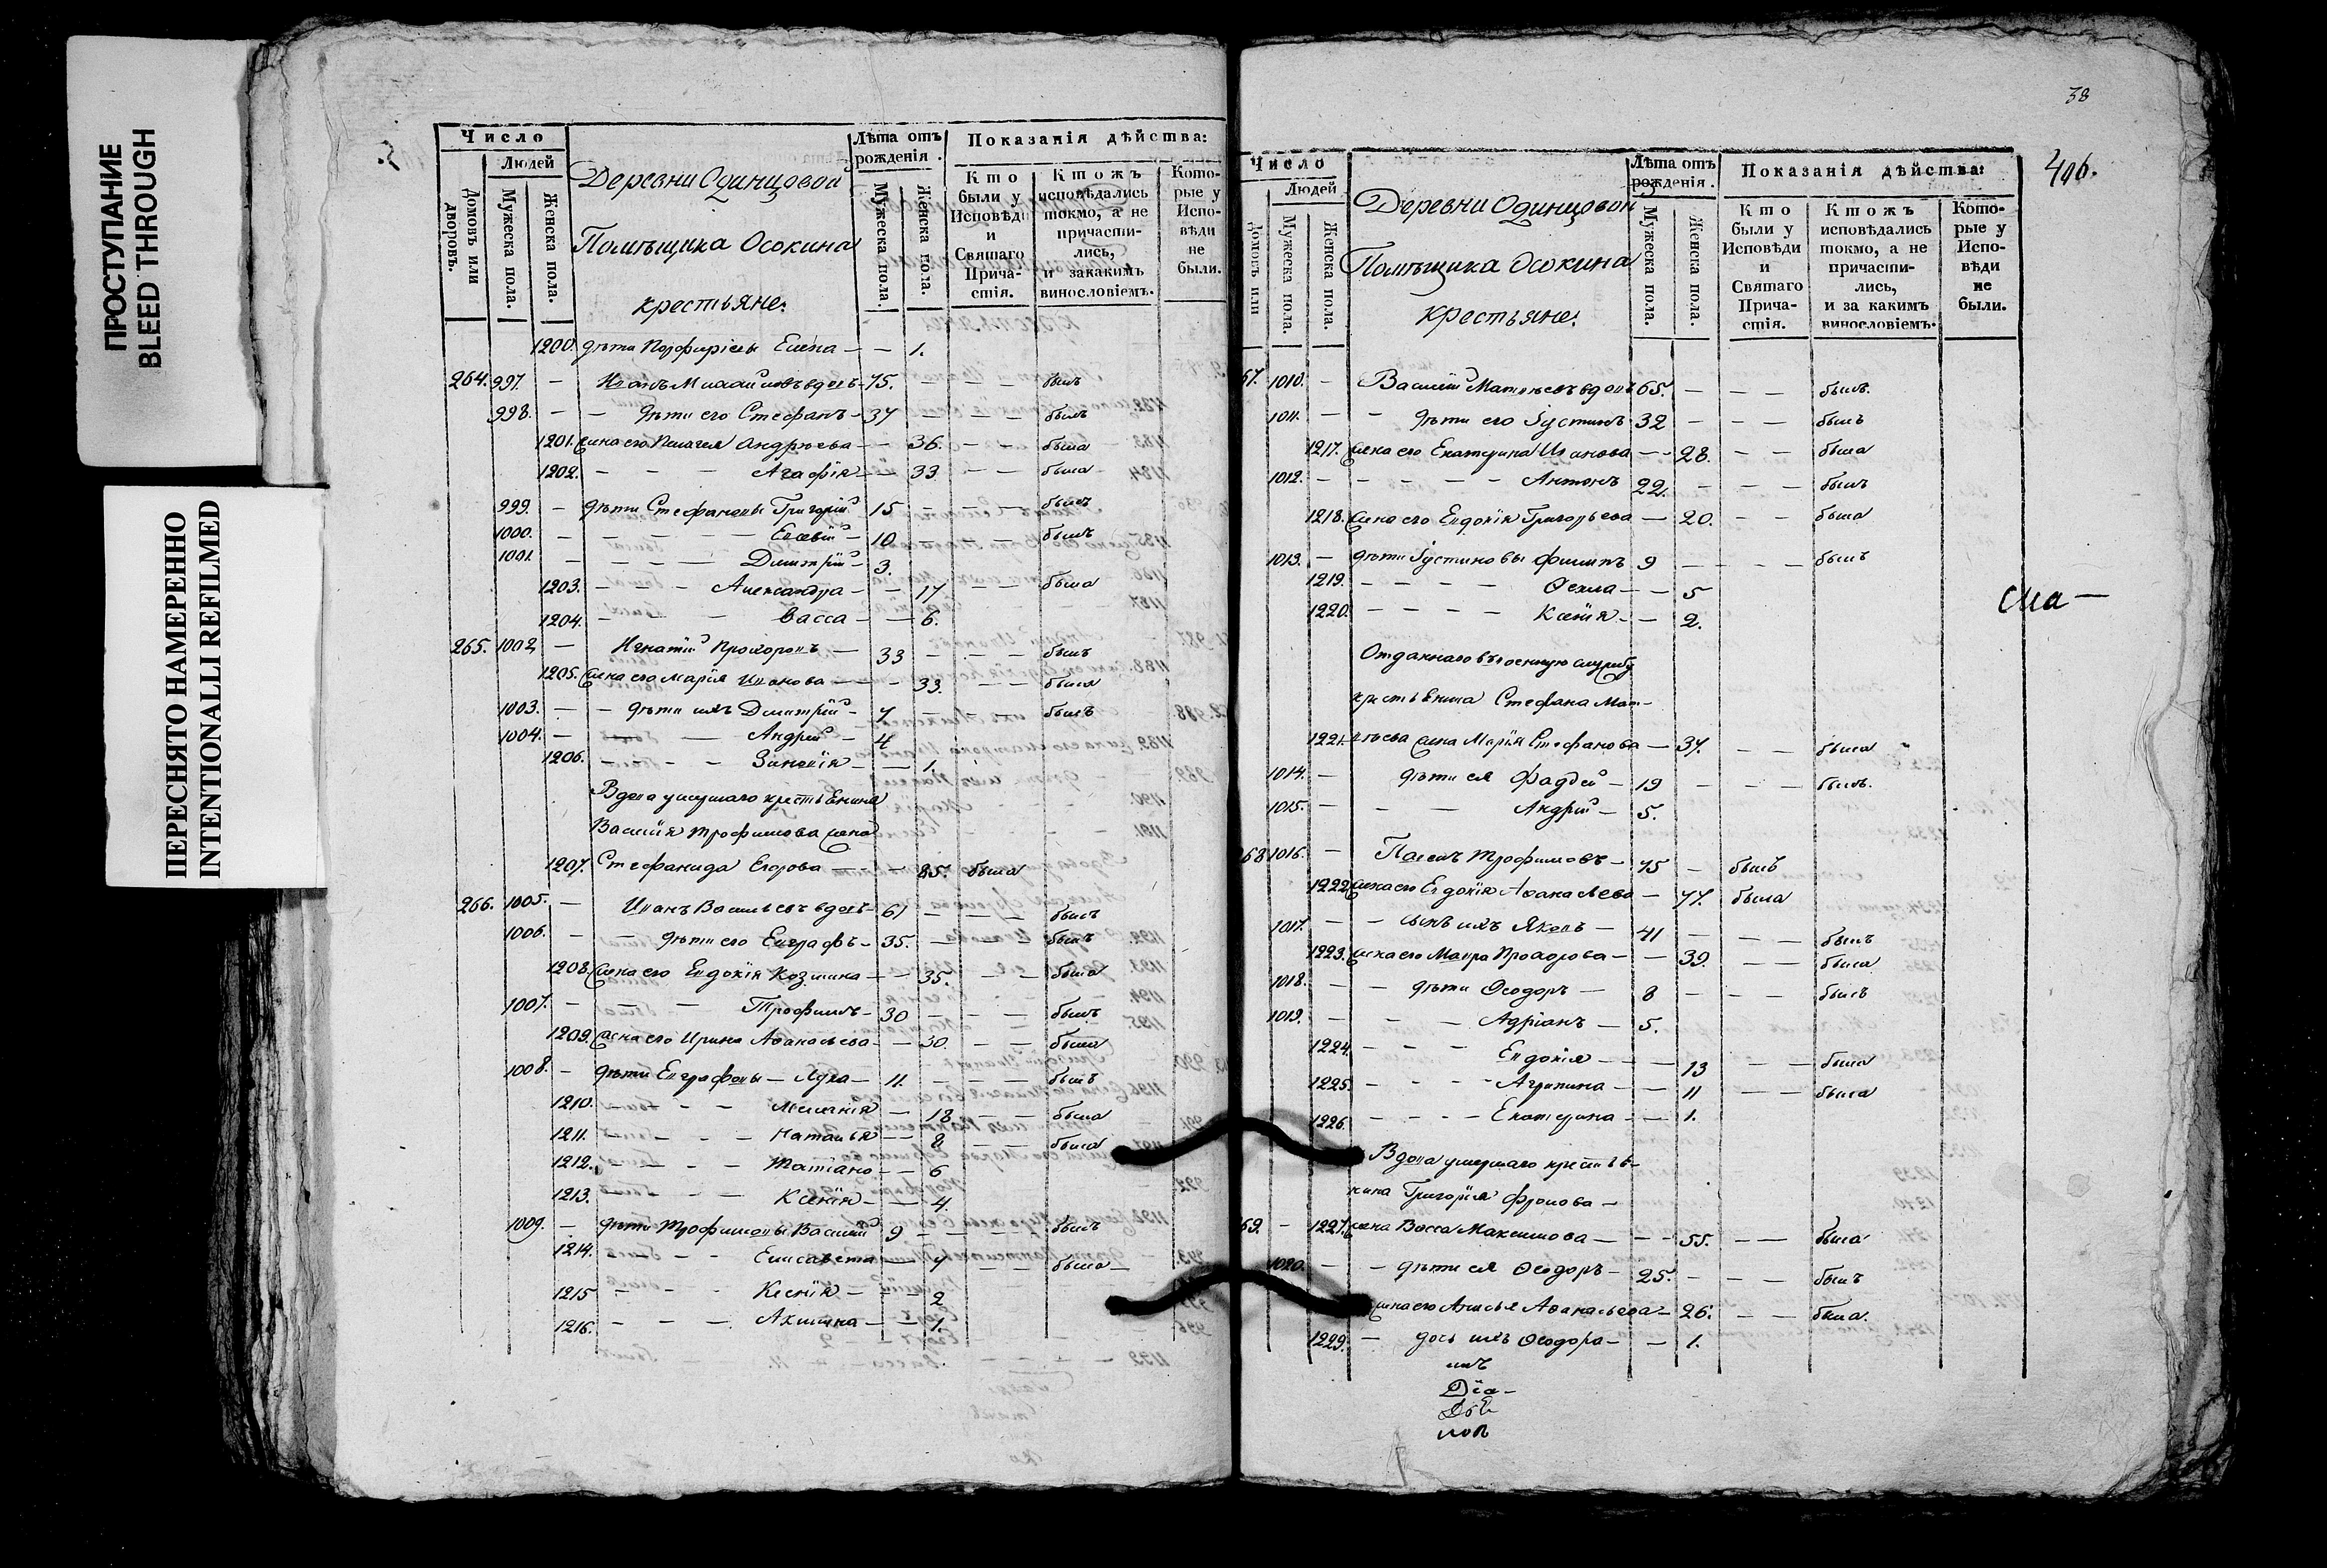 ПРОСТУПАНИЕ
BLEED THROUGH
ПЕРЕСНЯТО НАМЕРЕННО
INTENTIONALLI REFILMED
Число
Людей
Домовъ или дворовъ.
Мужеска пола.
Женска пола.
Деревни Одинцовой
Помѣщика Осокина
крестьяне.
Лѣта отъ рожденія.
Мужеска пола.
Женска пола.
Показанія дѣйства:
Кто были у Исповѣди и Святаго Прича-стія.
Ктожъ исповѣдались токмо, а не причасти-лись, и закакимъ винословіемъ.
Кото-рые у Испо-вѣди не были.
1200. дѣти Порфиріевы Елена — — 1.
264. 997. — Иванъ вдовъ — 75. — — — былъ
998. — — дѣти его Стефанъ — 37 — — — былъ
1201. жена его Пелагея Андрѣева — — 36. — — была
1202. — — — Агафія — — 33 — — была
999. — дѣти Стефановы Григорій 15 — — — былъ
1000. — — — — Евсевій — 10 — — — былъ
1001. — — — — Димитрій — 3.
1203. — — — Александра — — 17 — — была
1204. — — Васса — — 6.
265. 1002 — Игнатій Прохоровъ — 33 — — — былъ
1205. жена его Марія Иванова — — 33. — — была
1003. — — дѣти ихъ Димитрій — 7 — — — былъ
1004. — — — Андрей — 4
1206. — — — — Зиновія — — 1.
Вдова умершаго крестьянина
Василія Трофимова жена
1207. Стефанида Егорова — — 85. была
266. 1005. — Иванъ Васильевъ вдовъ — 61 — — — былъ
1006. — — дѣти его Евграфъ — 35. — — — былъ
1208. жена его Евдокія Козмина — — 35. — — была
1007. — — — Трофимъ — 30 — — — былъ
1209. жена его Ирина Аѳанасьева — — 30. — — была
1008. — дѣти Евграфовы — Лука — 11. — — — былъ
1210. — — — Меланія — 13 — — была
1211. — — — Наталья — — 8 — — была
1212. — — — — Татіана — — 6
1213. — — Ксенія — — 4.
1009. — дѣти Трофимовы Василій 9 — — — былъ
1214. — — Елисавета — 7 — — была
1215 — — — Ксенія — — 2
1216. — — — Акилина — — 1.
38
406.
Число
Людей
Домовъ или
Мужеска пола.
Женска пола.
Деревни Одинцовой
Помѣщика Осокина
крестьяне.
Лѣта отъ рожденія.
Мужеска пола.
Женска пола.
Показанія дѣйства:
Кто были у Исповѣди и Святаго Прича-стія.
Ктожъ исповѣдались токмо, а не причасти-лись, и за какимъ винословіемъ.
Кото-рые у Испо-вѣди не были.
67. 1010. — Василій Матвѣевъ вдовъ 65. — — — былъ.
1011. — — дѣти его Іустинъ 32 — — — былъ
1217. жена его Екатерина Иванова — — 28. — — была
1012. — — — — — Антонъ 22. — — — былъ
1218. жена его Евдокія Григорьева — 20. — — была
1013. — дѣти Іустиновы Филипъ 9 — — — былъ
1219. — — — — Ѳекла — — 5
1220. — — — — Ксенія — — 2.
сла —
Отданнаго въ военную службу
крестьянина Стефана Мат-
1221. вѣева жена Марія Стефанова — 37. — — была
1014. — дѣти ея Фаддей — 19 — — — былъ.
1015. — — — Андрей — 5.
268 1016. — Павелъ Трофимовъ — 75 — былъ
1222. жена его Евдокія Аѳанасьева — 77. была
1017. — — сынъ ихъ Яковъ — 41 — — — былъ
1223. жена его Мавра Прохорова — — 39. — — была
1018. — — дѣти Ѳеодоръ — 8 — — — былъ
1019. — — — Адріанъ — 5.
1224. — — — Евдокія — — 13 — — была
1225. — — — — Агрипина — — 11 — — была
1226. — — — — Екатерина — — 1.
Вдова умершаго крестья-
нина Григорія Фролова —
69. — 1227. жена Васса Максимова — — — 55. — — была
1020. — — дѣти ея Ѳеодоръ — 25. — — — былъ
жена его Аѳанасьева — 26. — — была.
1229. — дочь ихъ Ѳеодора — — 1.